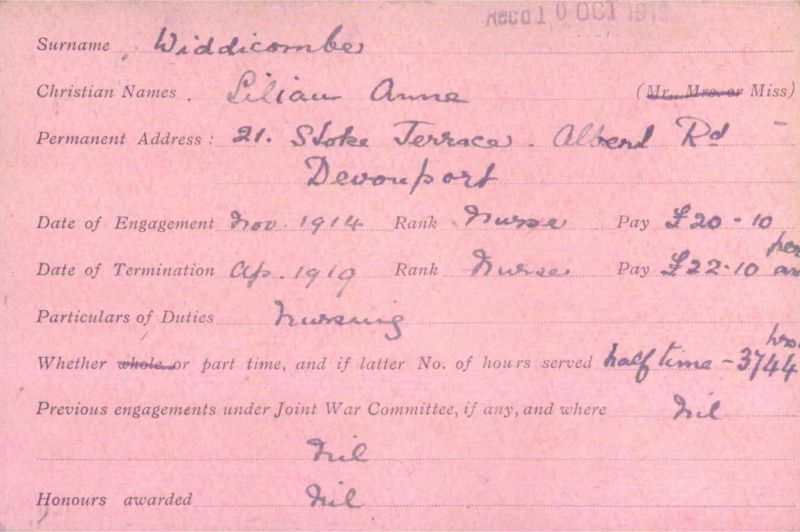 Recd 10 OCT 191
Surname Widdicombe
Christian Names. Lilian Anne (Mr., Mrs. or Miss)
Permanent Address: 21. Stoke Terrace. Albert Rd
Devonport
Date of Engagement Nov. 1914 Rank Nurse Pay £20-10
Date of Termination Ap. 1919 Rank Nurse Pay £22-10 per
Particulars of Duties Nursing
Whether whole or part time, and if latter No. of hours served half time - 3744 hrs
Previous engagements under Joint War Committee, if any, and where Nil
Nil
Honours awarded Nil